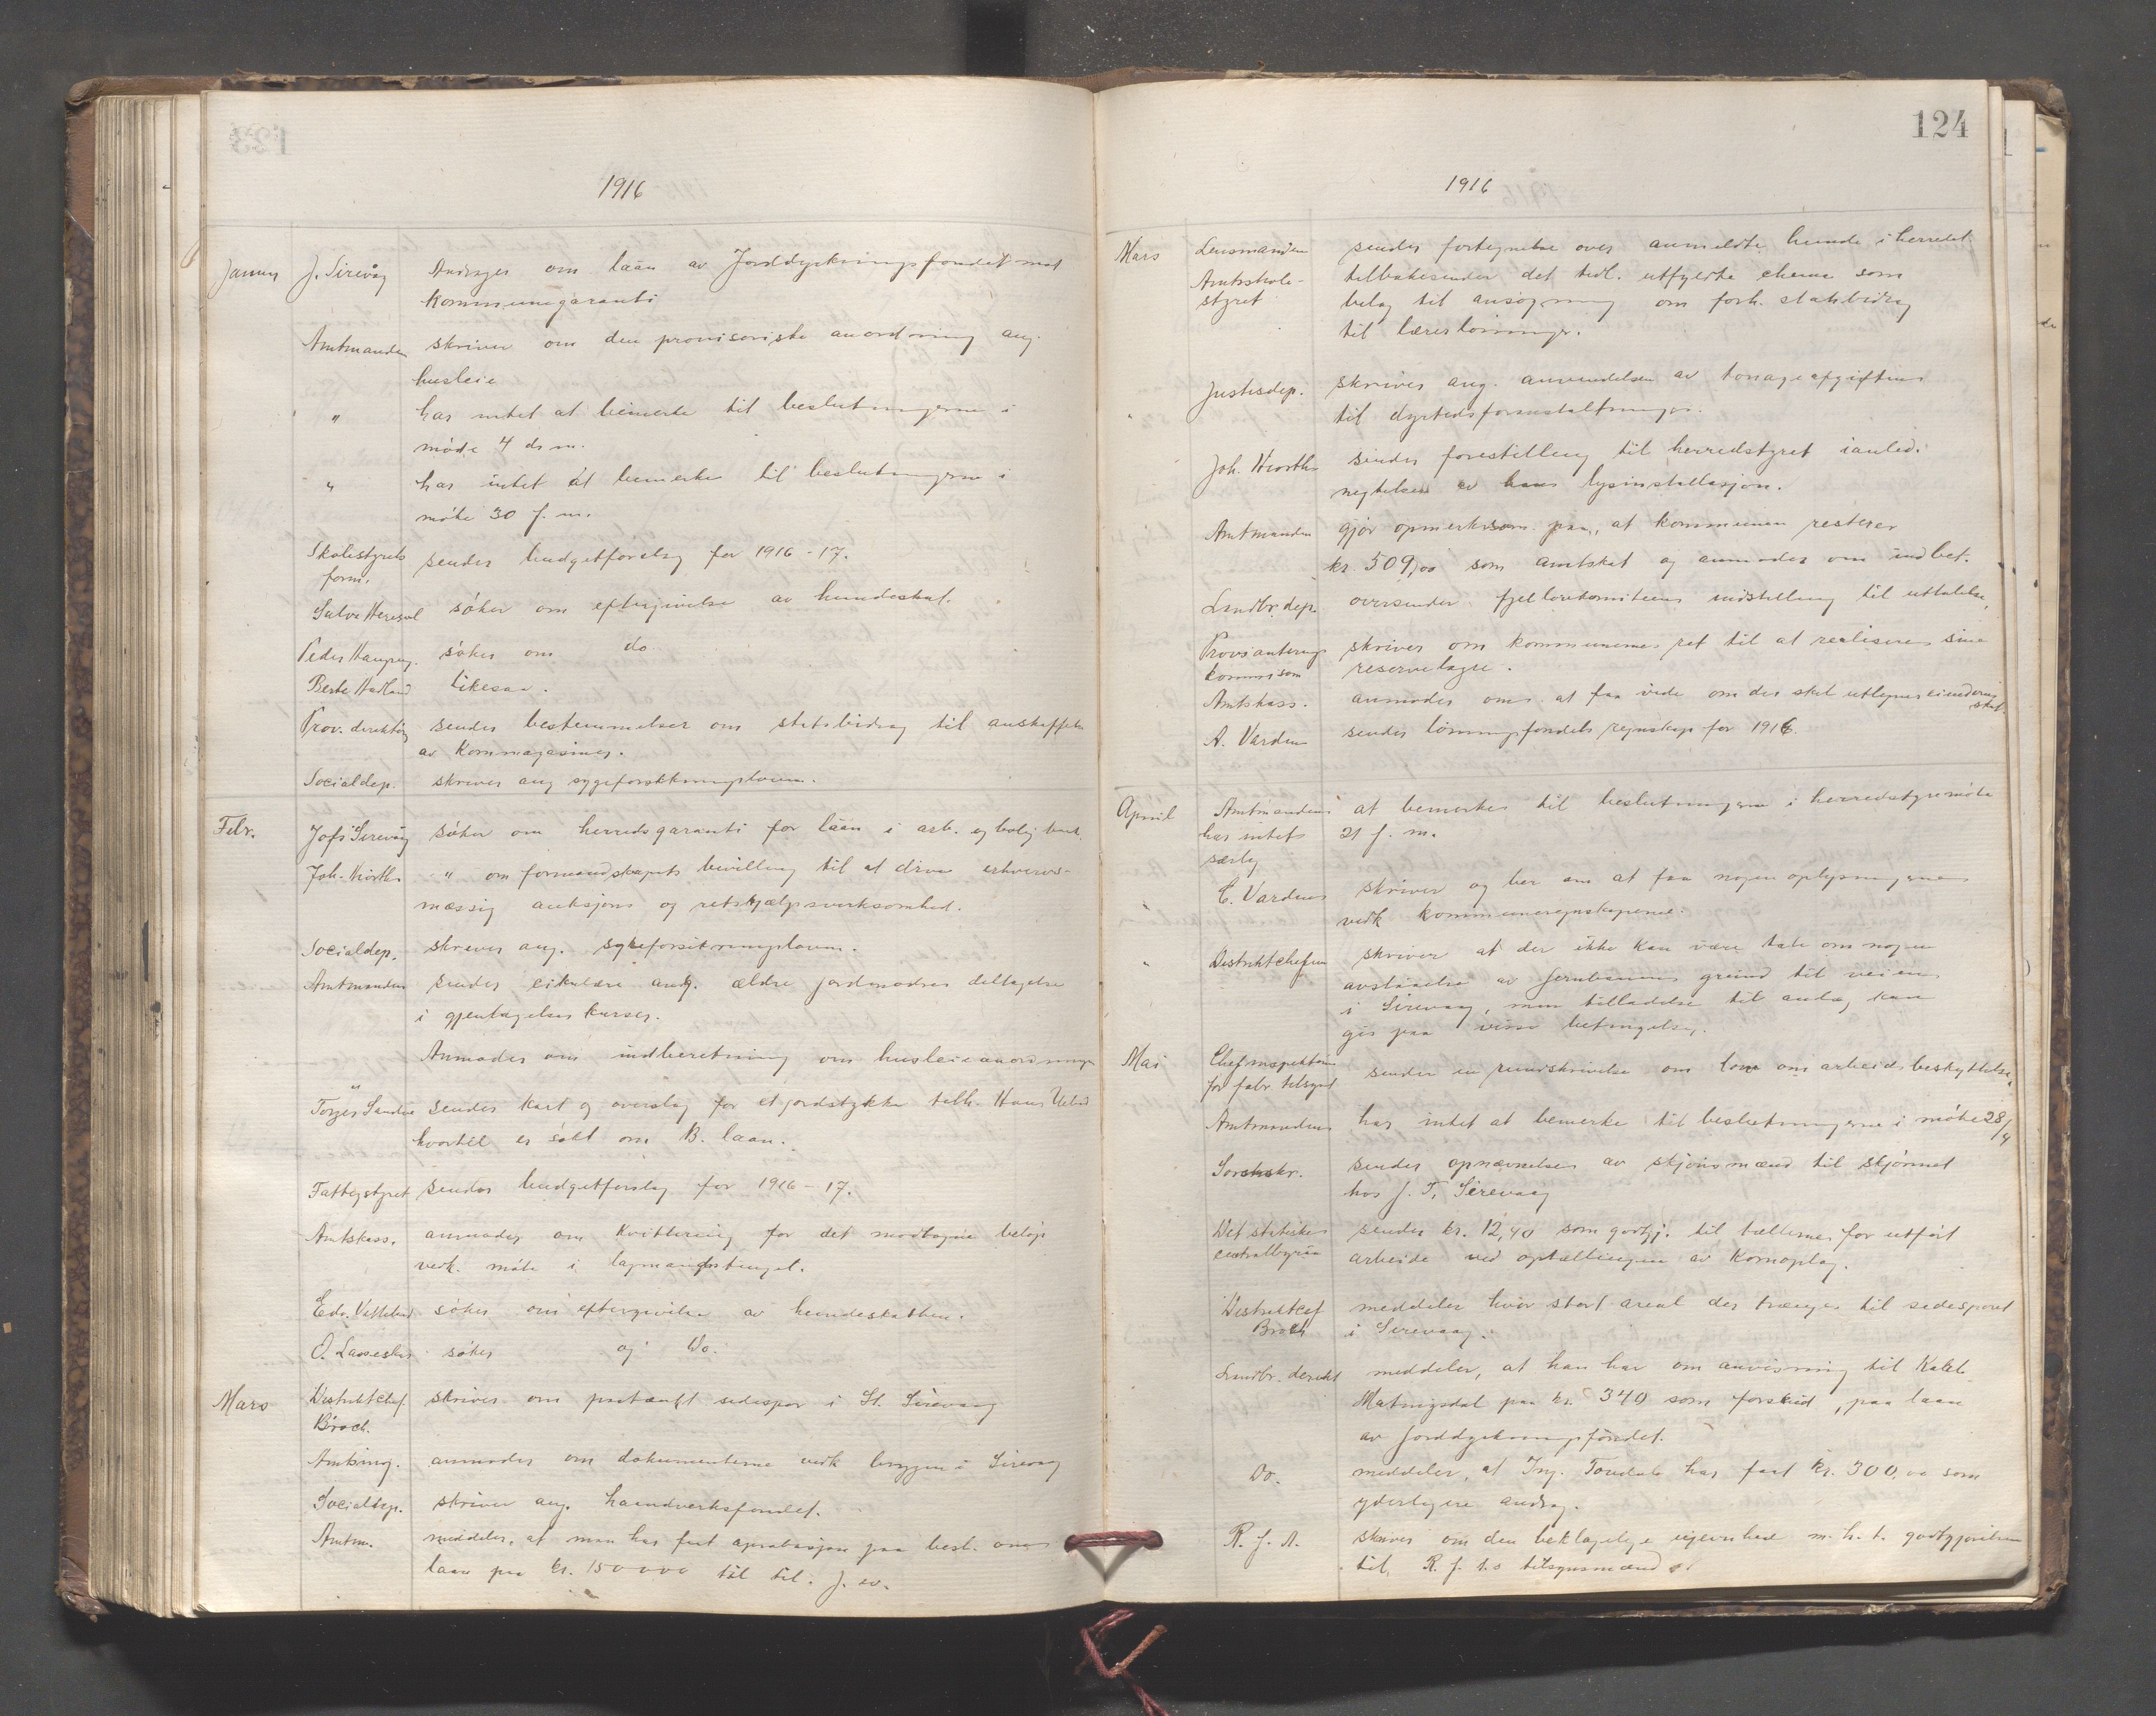 1916
Januar J. Sirevåg Andrager om låån av Jorddyrkningsfondet mot
kommunegaranti
Amtmanden skriver om den provisoriske anordning ang.
husleie
" har intet at bemerke til beslutningerne i
møde 4 ds m.
" har intet at bemerke til beslutningerne i
møte 30 f. m.
Skolestyrets form. sender budgetforslag for 1916-17.
Salve søker om eftergivelse av hundeskat.
Peder søker om do
Berte Hadland Likesaa.
Prov. direktør sender bestemmelser om statsbidrag til anskaffelse
av Kornmagasiner.
Socialdep. skriver ang sygeforsikringsloven.
Febr. Sirevåg søker om herredsgaranti for låån i arb. og bolig bank.
Joh. Hiorth " om formandskapets bevilling til at drive erhvervs-
mæssig auksjons og retshjælpsvirksomhed.
Socialdep. skriver ang. sykeforsikringsloven.
Amtmanden sender cirkulære ang. ældre jordmødres deltagelse
i gjentagelses kurser.
" Anmoder om indberetning om husleieanordningen
Torger sender kart og overslag for et jordstykke tilh. Hans
hvortil er søkt om B. laan.
Fattigstyret sender budgetforslag for 1916-17.
Amtskass. anmoder om kvittering for det modtagne beløp
vedk. møte i lagmandstinget.
Edv. søker om eftergivelse av hundeskatten.
O. søker og Do.
Mars Distriktchef skriver om paatænkt sidespor i St. Sirevaag
Broch.
Amtsing. anmoder om dokumenterne vedk bryggen i Sirevaag
Socialdep. skriver ang. haandverksfondet.
Amtm. meddeler, at man har faat aprobasjon paa besl. om
laan paa kr. 150000 til

124
1916
Mars Lensmanden sender fortegnelse over anmeldte hunde i herredet
Amtsskole- tilbakesender det tidl. utfyldte chema som
styret belag til ansøgning om forh. statsbidrag
til lærerlønninger.
" Justisdep. skriver ang. anvendelsen av tonageafgiften
til dyrtidsforanstaltninger.
Joh. Hiorth sender forestilling til herredstyret ianled.
negtelsen av hans lysinstallasjon.
Amtmanden gjør opmerksom paa, at kommunen resterer
kr 509,00 som amtskat og anmoder om indbet.
Landbr. dep. oversender fjellovkomiteens indstilling til uttalelse.
Provianterings skriver om kommunernes ret til at realisere sine
kommisson reservelagre.
Amtskass. anmoder om at faa vide om der skal utlignes eiendoms
skat.
A. Varden sender lønningsfondets regnskap for 1916.
April Amtmanden at bemerke til beslutningerne i herredstyremøte
har intet 21 f. m.
særlig
" C. Varden skriver og ber om at faa nogen oplysninger
vedk kommuneregnskaperne.
" Distriktchefen skriver at der ikke kan være tale om nogen
avstaaelse av Jernbanens grund til veien
i Sirevaag, men tilladelse til anlæg kan
gis paa visse betingelser.
Mai Chefinspektøren
for fabr. tilsynet sender en rundskrivelse om lov om arbeidsbeskyttelse.
Amtmanden har intet at bemerke til beslutningerne i møte 28/4
Sorenskr. sender opnævnelsen av skjønsmænd til skjønnet
hos J. T. Sirevaag
Det statistiske sender kr. 12,40 som godtgj. til tællerne for utført
centralbyraa arbeide ved optællingen av Kornoplag.
Distriktchef meddeler hvor stort areal der trænges til sidesporet
Broch i Sirevaag.
Landbr. direkt meddeler, at han har om anvisning til
Matningsdal paa kr. 340 som forskud, paa laan
av Jorddyrkningsfondet.
Do. meddeler, at Ing. har faat kr. 300,00 som
yderligere andrag.
R. J. A. skriver om den beklagelige ujevnhed m. h. t. godtgjørelsen
til R. J. tilsynsmænd